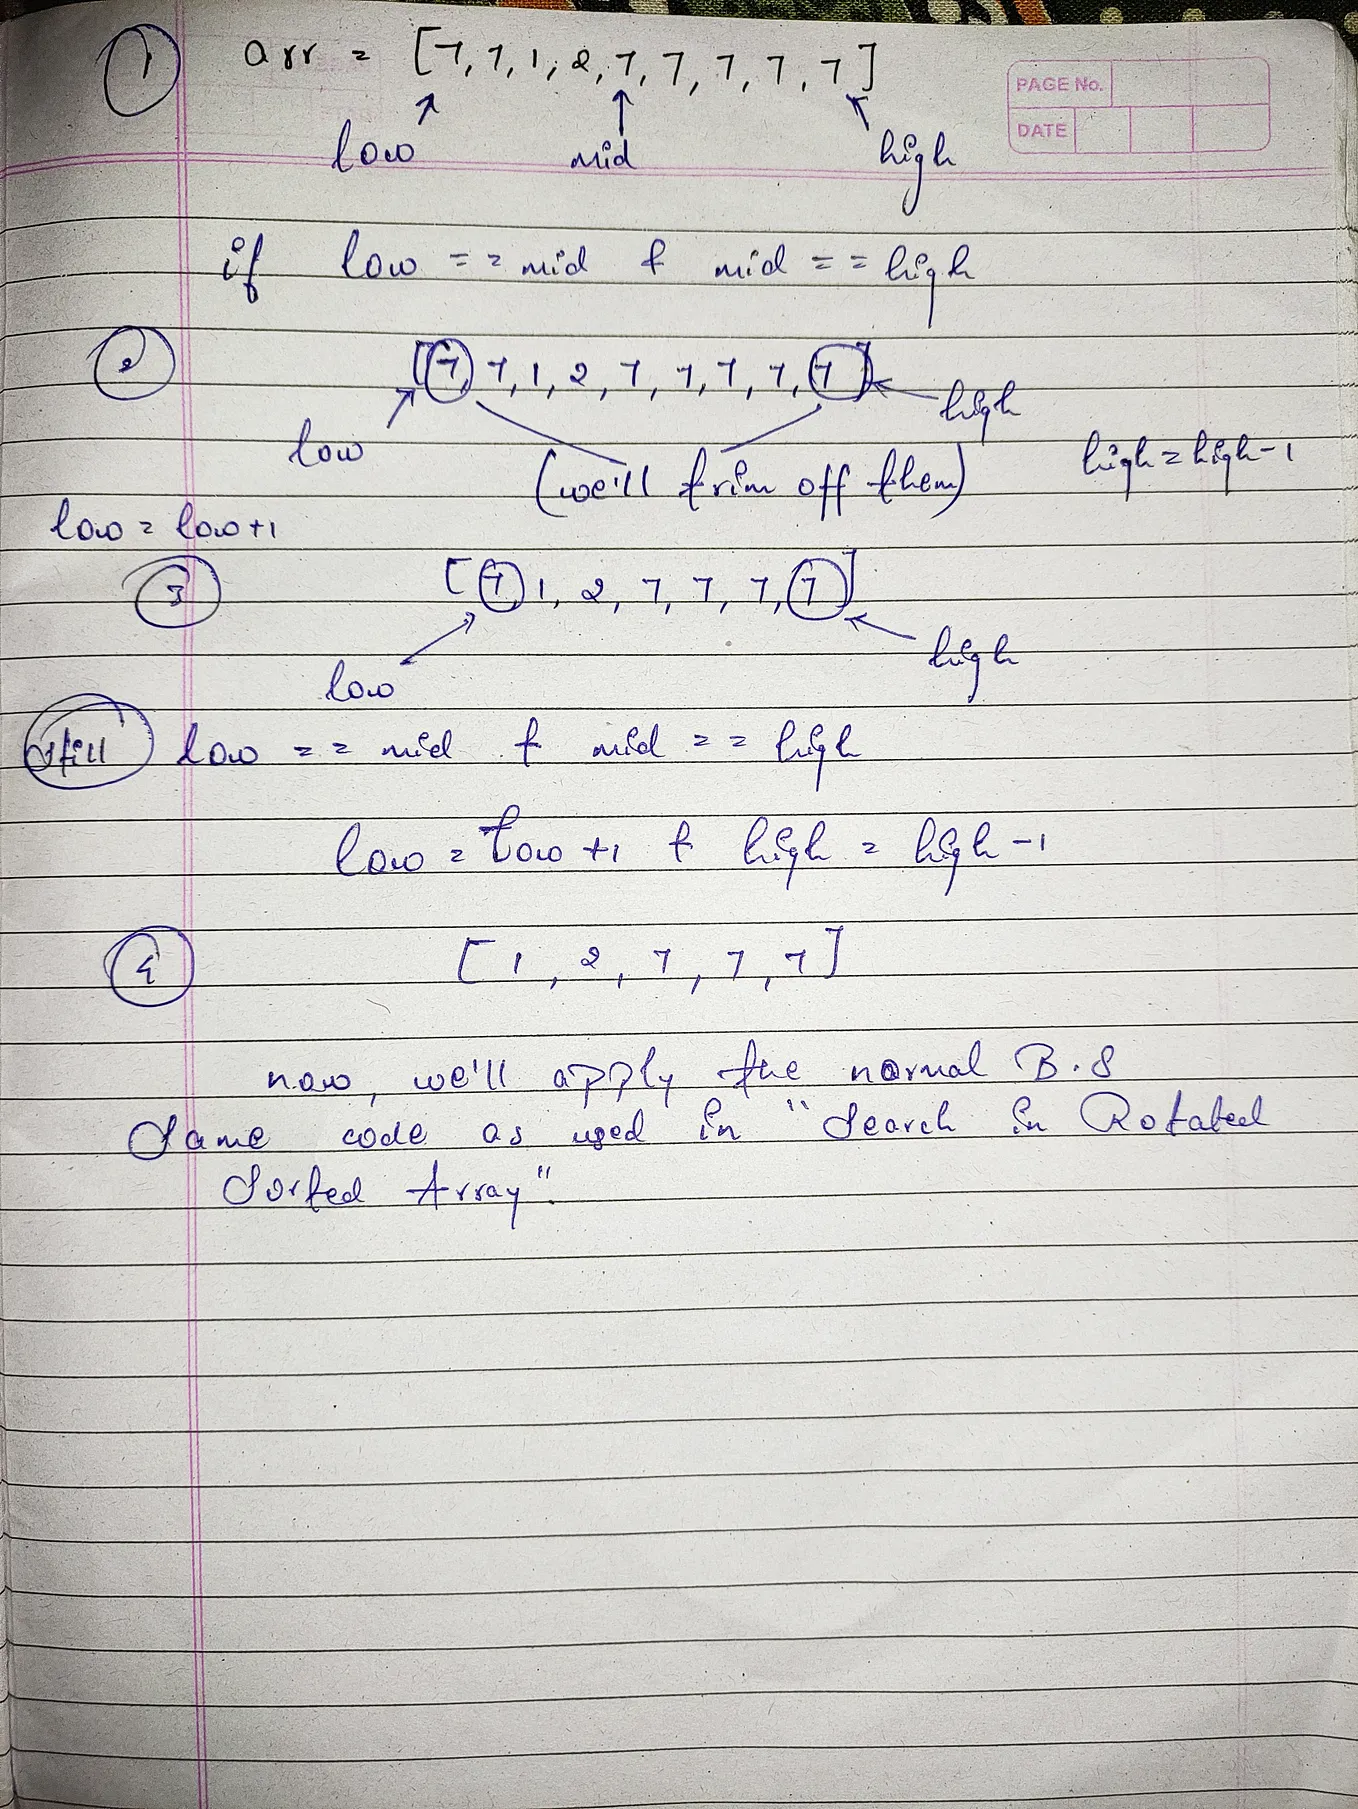 1 arr = [7, 7, 1, 2, 7, 7, 7, 7, 7]
PAGE No.
DATE
low mid high
if low == mid & mid == high
2 [7, 7, 1, 2, 7, 7, 7, 7, 7]
low high
(we'll trim off them) high = high-1
low = low+1
3 [7, 1, 2, 7, 7, 7, 7]
low high
still low == mid & mid == high
low = low +1 & high = high -1
4 [1, 2, 7, 7, 7]
now, we'll apply the normal B.S
Same code as used in "Search in Rotated
Sorted Array".